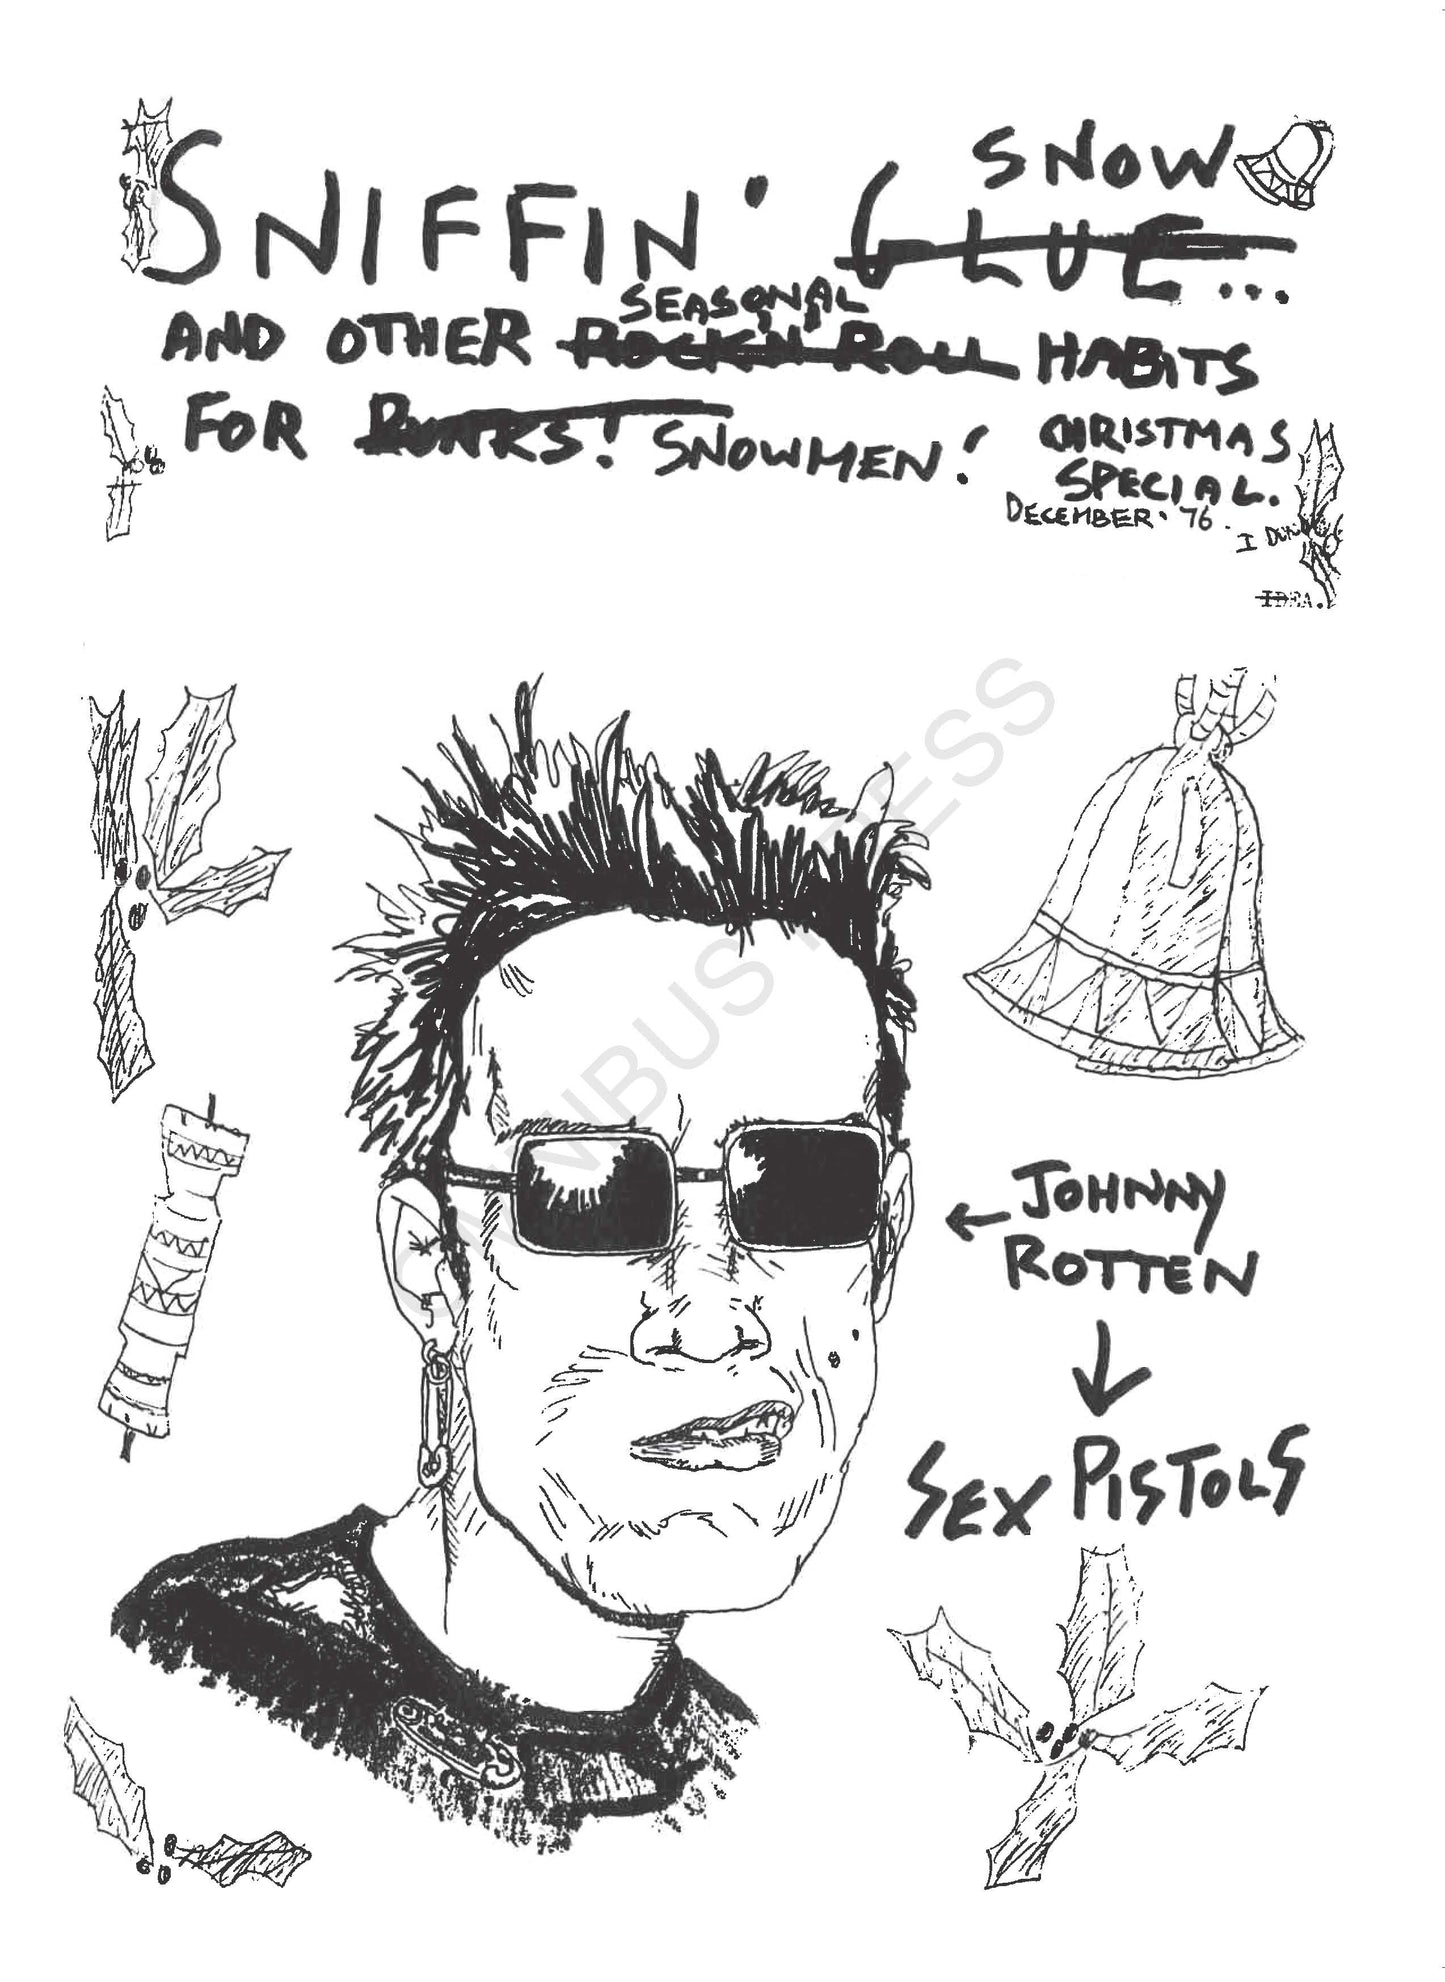 SNOW
SNIFFIN' GLUE...
SEASONAL
AND OTHER ROCK'N ROLL HABITS
FOR PUNKS! SNOWMEN!
CHRISTMAS
SPECIAL.
DECEMBER. 76.
I
IDEA.
OMNIBUS PRESS
← JOHNNY
ROTTEN
↓
SEX PISTOLS